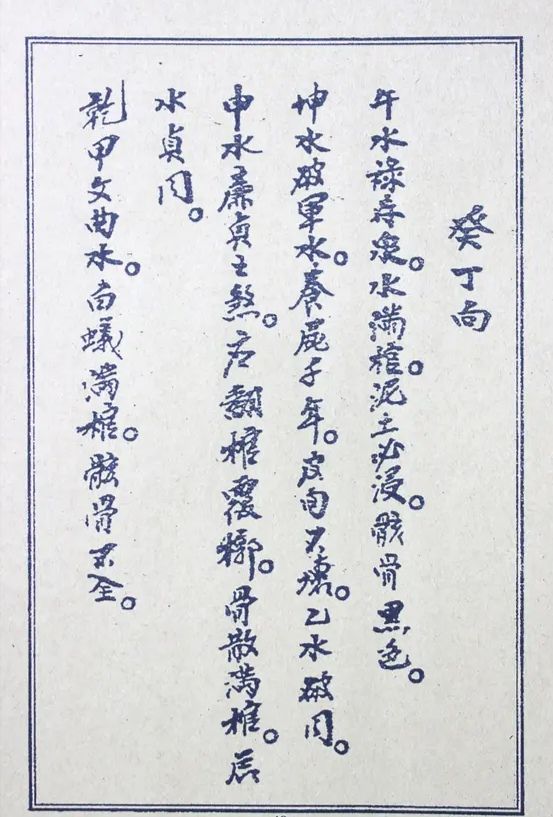 癸丁向
午水祿存泉。水滿棺。泥土必浸。骸骨黑色。
坤水破軍水。養屍千年。皮肉不壞。乙水破同。
申水廉貞煞。翻棺覆槨。骨散滿棺。辰
水貞同。
乾甲文曲水。白蟻滿棺。骸骨不全。